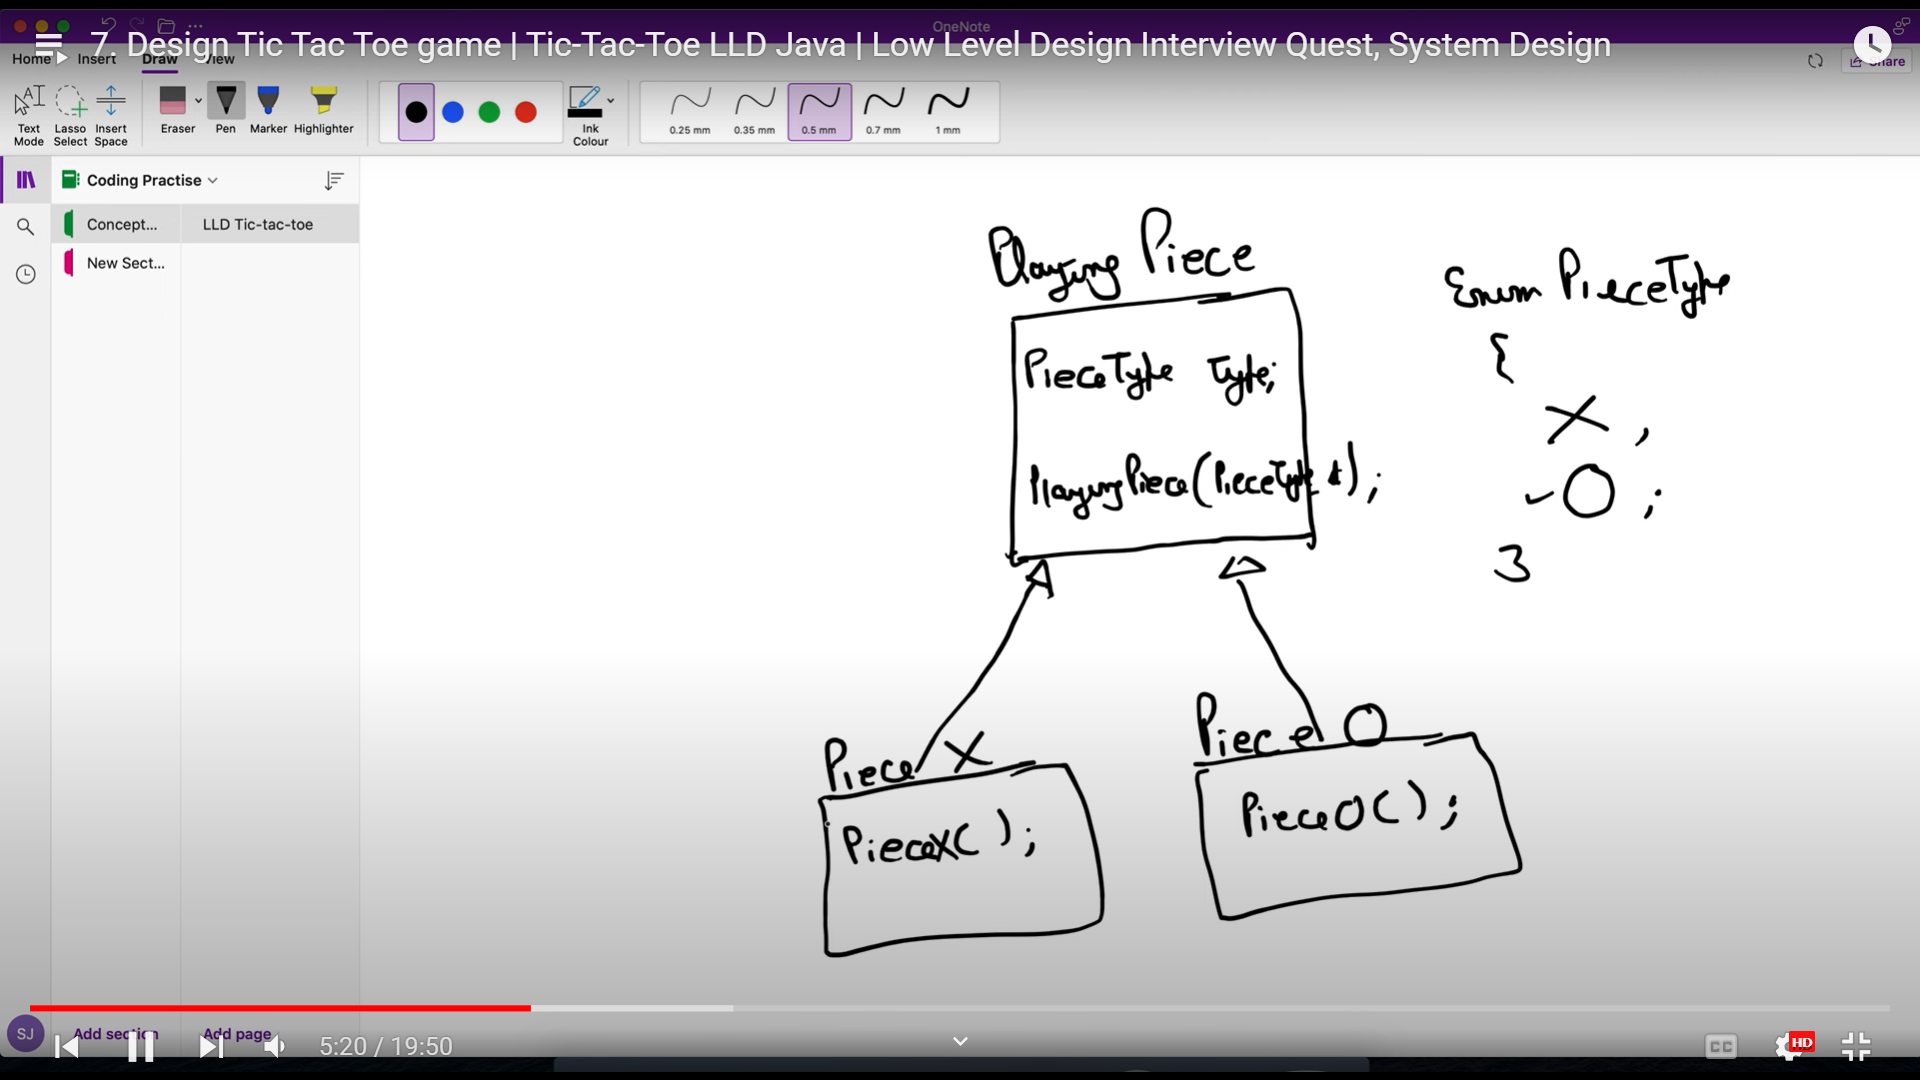 OneNote
7. Design Tic Tac Toe game | Tic-Tac-Toe LLD Java | Low Level Design Interview Quest, System Design
Home Insert Draw View
Share
Text Mode
Lasso Select
Insert Space
Eraser
Pen
Marker
Highlighter
Ink Colour
0.25 mm
0.35 mm
0.5 mm
0.7 mm
1 mm
Coding Practise
Concept...
LLD Tic-tac-toe
New Sect...
Playing Piece
PieceType Type;
PlayingPiece(PieceType t);
Enum PieceType
{
X ,
O ;
}
Piece X
PieceX( );
Piece O
PieceO( );
SJ
Add section
Add page
5:20 / 19:50
CC
HD